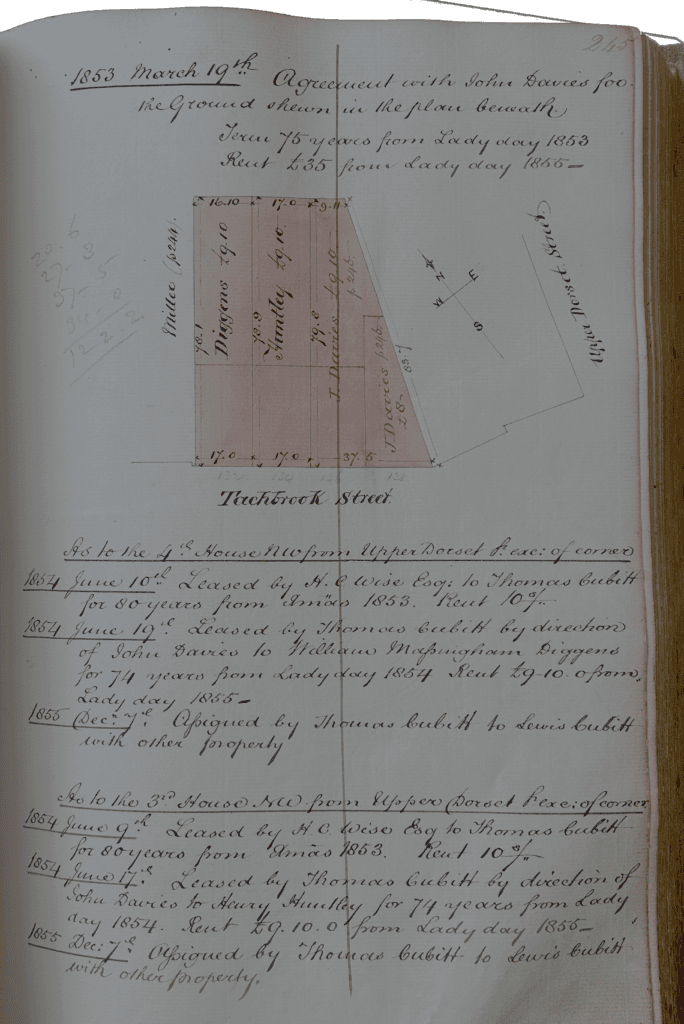 245
1853 March 19th Agreement with John Davies for
the Ground shewn in the plan beneath
Term 75 years from Lady day 1853
Rent £35 from Lady day 1855—
16.10 17.0 9.11
Miller (p 244)
78.1
Diggens £9.10
78.9
Huntley £9.10
79.0
J. Davies £9.10
p 245
J. Davies p 246
£8—
83.7
N
E
S
W
Upper Dorset Street
17.0 17.0 37.5
Tachbrook Street
As to the 4th House NW from Upper Dorset St exc: of corner
1854 June 10th Leased by H. C Wise Esq: to Thomas Cubitt
for 80 years from Xmas 1853. Rent 10s/-
1854 June 19th Leased by Thomas Cubitt by direction
of John Davies to William Massingham Diggens
for 74 years from Lady day 1854 Rent £9.10.0 from
Lady day 1855—
1855 Decr 7th Assigned by Thomas Cubitt to Lewis Cubitt
with other property
As to the 3rd House NW from Upper Dorset St exc: of corner
1854 June 9th Leased by H. C. Wise Esq to Thomas Cubitt
for 80 years from Xmas 1853. Rent 10s/-
1854 June 17th Leased by Thomas Cubitt by direction of
John Davies to Henry Huntley for 74 years from Lady
day 1854. Rent £9.10.0 from Lady day 1855—
1855 Dec: 7th Assigned by Thomas Cubitt to Lewis Cubitt
with other property.